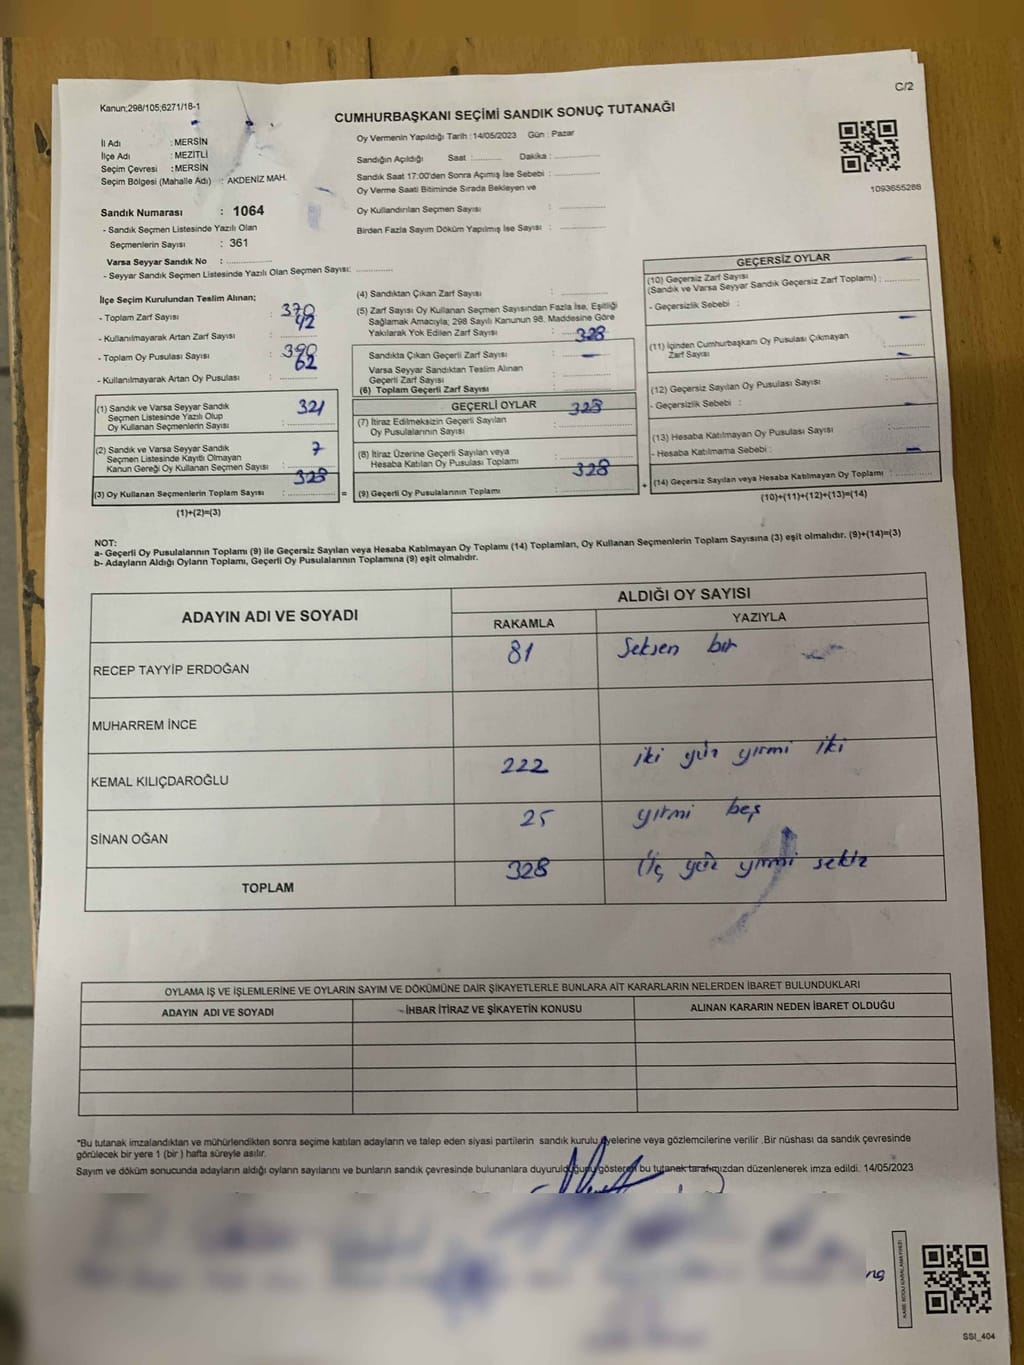 Kanun;298/105;6271/18-1
C/2
CUMHURBAŞKANI SEÇİMİ SANDIK SONUÇ TUTANAĞI
İl Adı : MERSİN
İlçe Adı : MEZİTLİ
Seçim Çevresi : MERSİN
Seçim Bölgesi (Mahalle Adı) : AKDENİZ MAH.
Oy Vermenin Yapıldığı Tarih : 14/05/2023 Gün : Pazar
Sandığın Açıldığı Saat :.......... Dakika :..............
Sandık Saat 17:00'den Sonra Açımış İse Sebebi : ..............
Oy Verme Saati Bitiminde Sırada Bekleyen ve
Oy Kullandırılan Seçmen Sayısı : ..............
Birden Fazla Sayım Döküm Yapılmış İse Sayısı : ..............
1093655288
Sandık Numarası : 1064
- Sandık Seçmen Listesinde Yazılı Olan
Seçmenlerin Sayısı : 361
Varsa Seyyar Sandık No : ..............
- Seyyar Sandık Seçmen Listesinde Yazılı Olan Seçmen Sayısı: ...........
İlçe Seçim Kurulundan Teslim Alınan;
- Toplam Zarf Sayısı : 370
- Kullanılmayarak Artan Zarf Sayısı : 42
- Toplam Oy Pusulası Sayısı : 390
- Kullanılmayarak Artan Oy Pusulası : 62
(1) Sandık ve Varsa Seyyar Sandık
Seçmen Listesinde Yazılı Olup
Oy Kullanan Seçmenlerin Sayısı : 321
(2) Sandık ve Varsa Seyyar Sandık
Seçmen Listesinde Kayıtlı Olmayan
Kanun Gereği Oy Kullanan Seçmen Sayısı : 7
(3) Oy Kullanan Seçmenlerin Toplam Sayısı : 328 =
(1)+(2)=(3)
(4) Sandıktan Çıkan Zarf Sayısı : ..............
(5) Zarf Sayısı Oy Kullanan Seçmen Sayısından Fazla İse, Eşitliği
Sağlamak Amacıyla; 298 Sayılı Kanunun 98. Maddesine Göre
Yakılarak Yok Edilen Zarf Sayısı : ..............
328
Sandıkta Çıkan Geçerli Zarf Sayısı : ..............
Varsa Seyyar Sandıktan Teslim Alınan
Geçerli Zarf Sayısı : —
(6) Toplam Geçerli Zarf Sayısı : ..............
GEÇERLİ OYLAR
328
(7) İtiraz Edilmeksizin Geçerli Sayılan
Oy Pusulalarının Sayısı : ..............
(8) İtiraz Üzerine Geçerli Sayılan veya
Hesaba Katılan Oy Pusulası Toplamı : ..............
328
(9) Geçerli Oy Pusulalarının Toplamı : .............. +
GEÇERSİZ OYLAR
(10) Geçersiz Zarf Sayısı
(Sandık ve Varsa Seyyar Sandık Geçersiz Zarf Toplamı) : ...........
- Geçersizlik Sebebi :
(11) İçinden Cumhurbaşkanı Oy Pusulası Çıkmayan
Zarf Sayısı : ...........
(12) Geçersiz Sayılan Oy Pusulası Sayısı : ...........
- Geçersizlik Sebebi :
(13) Hesaba Katılmayan Oy Pusulası Sayısı : ...........
- Hesaba Katılmama Sebebi :
(14) Geçersiz Sayılan veya Hesaba Katılmayan Oy Toplamı : ...........
(10)+(11)+(12)+(13)=(14)
NOT:
a- Geçerli Oy Pusulalarının Toplamı (9) ile Geçersiz Sayılan veya Hesaba Katılmayan Oy Toplamı (14) Toplamları, Oy Kullanan Seçmenlerin Toplam Sayısına (3) eşit olmalıdır. (9)+(14)=(3)
b- Adayların Aldığı Oyların Toplamı, Geçerli Oy Pusulalarının Toplamına (9) eşit olmalıdır.
ADAYIN ADI VE SOYADI
ALDIĞI OY SAYISI
RAKAMLA YAZIYLA
RECEP TAYYİP ERDOĞAN 81 seksen bir
MUHARREM İNCE
KEMAL KILIÇDAROĞLU 222 iki yüz yirmi iki
SİNAN OĞAN 25 yirmi beş
TOPLAM 328 Üç yüz yirmi sekiz
OYLAMA İŞ VE İŞLEMLERİNE VE OYLARIN SAYIM VE DÖKÜMÜNE DAİR ŞİKAYETLERLE BUNLARA AİT KARARLARIN NELERDEN İBARET BULUNDUKLARI
ADAYIN ADI VE SOYADI
İHBAR İTİRAZ VE ŞİKAYETİN KONUSU
ALINAN KARARIN NEDEN İBARET OLDUĞU
*Bu tutanak imzalandıktan ve mühürlendikten sonra seçime katılan adayların ve talep eden siyasi partilerin sandık kurulu üyelerine veya gözlemcilerine verilir .Bir nüshası da sandık çevresinde
görülecek bir yere 1 (bir ) hafta süreyle asılır.
Sayım ve döküm sonucunda adayların aldığı oyların sayılarını ve bunların sandık çevresinde bulunanlara duyurulduğunu gösteren bu tutanak tarafımızdan düzenlenerek imza edildi. 14/05/2023
SSI_404